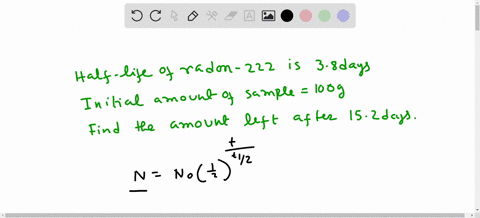 Half-life of radon-222 is 3.8days
Initial amount of sample = 100g
Find the amount left after 15.2days.
N = N₀(1/2)^(t/t1/2)